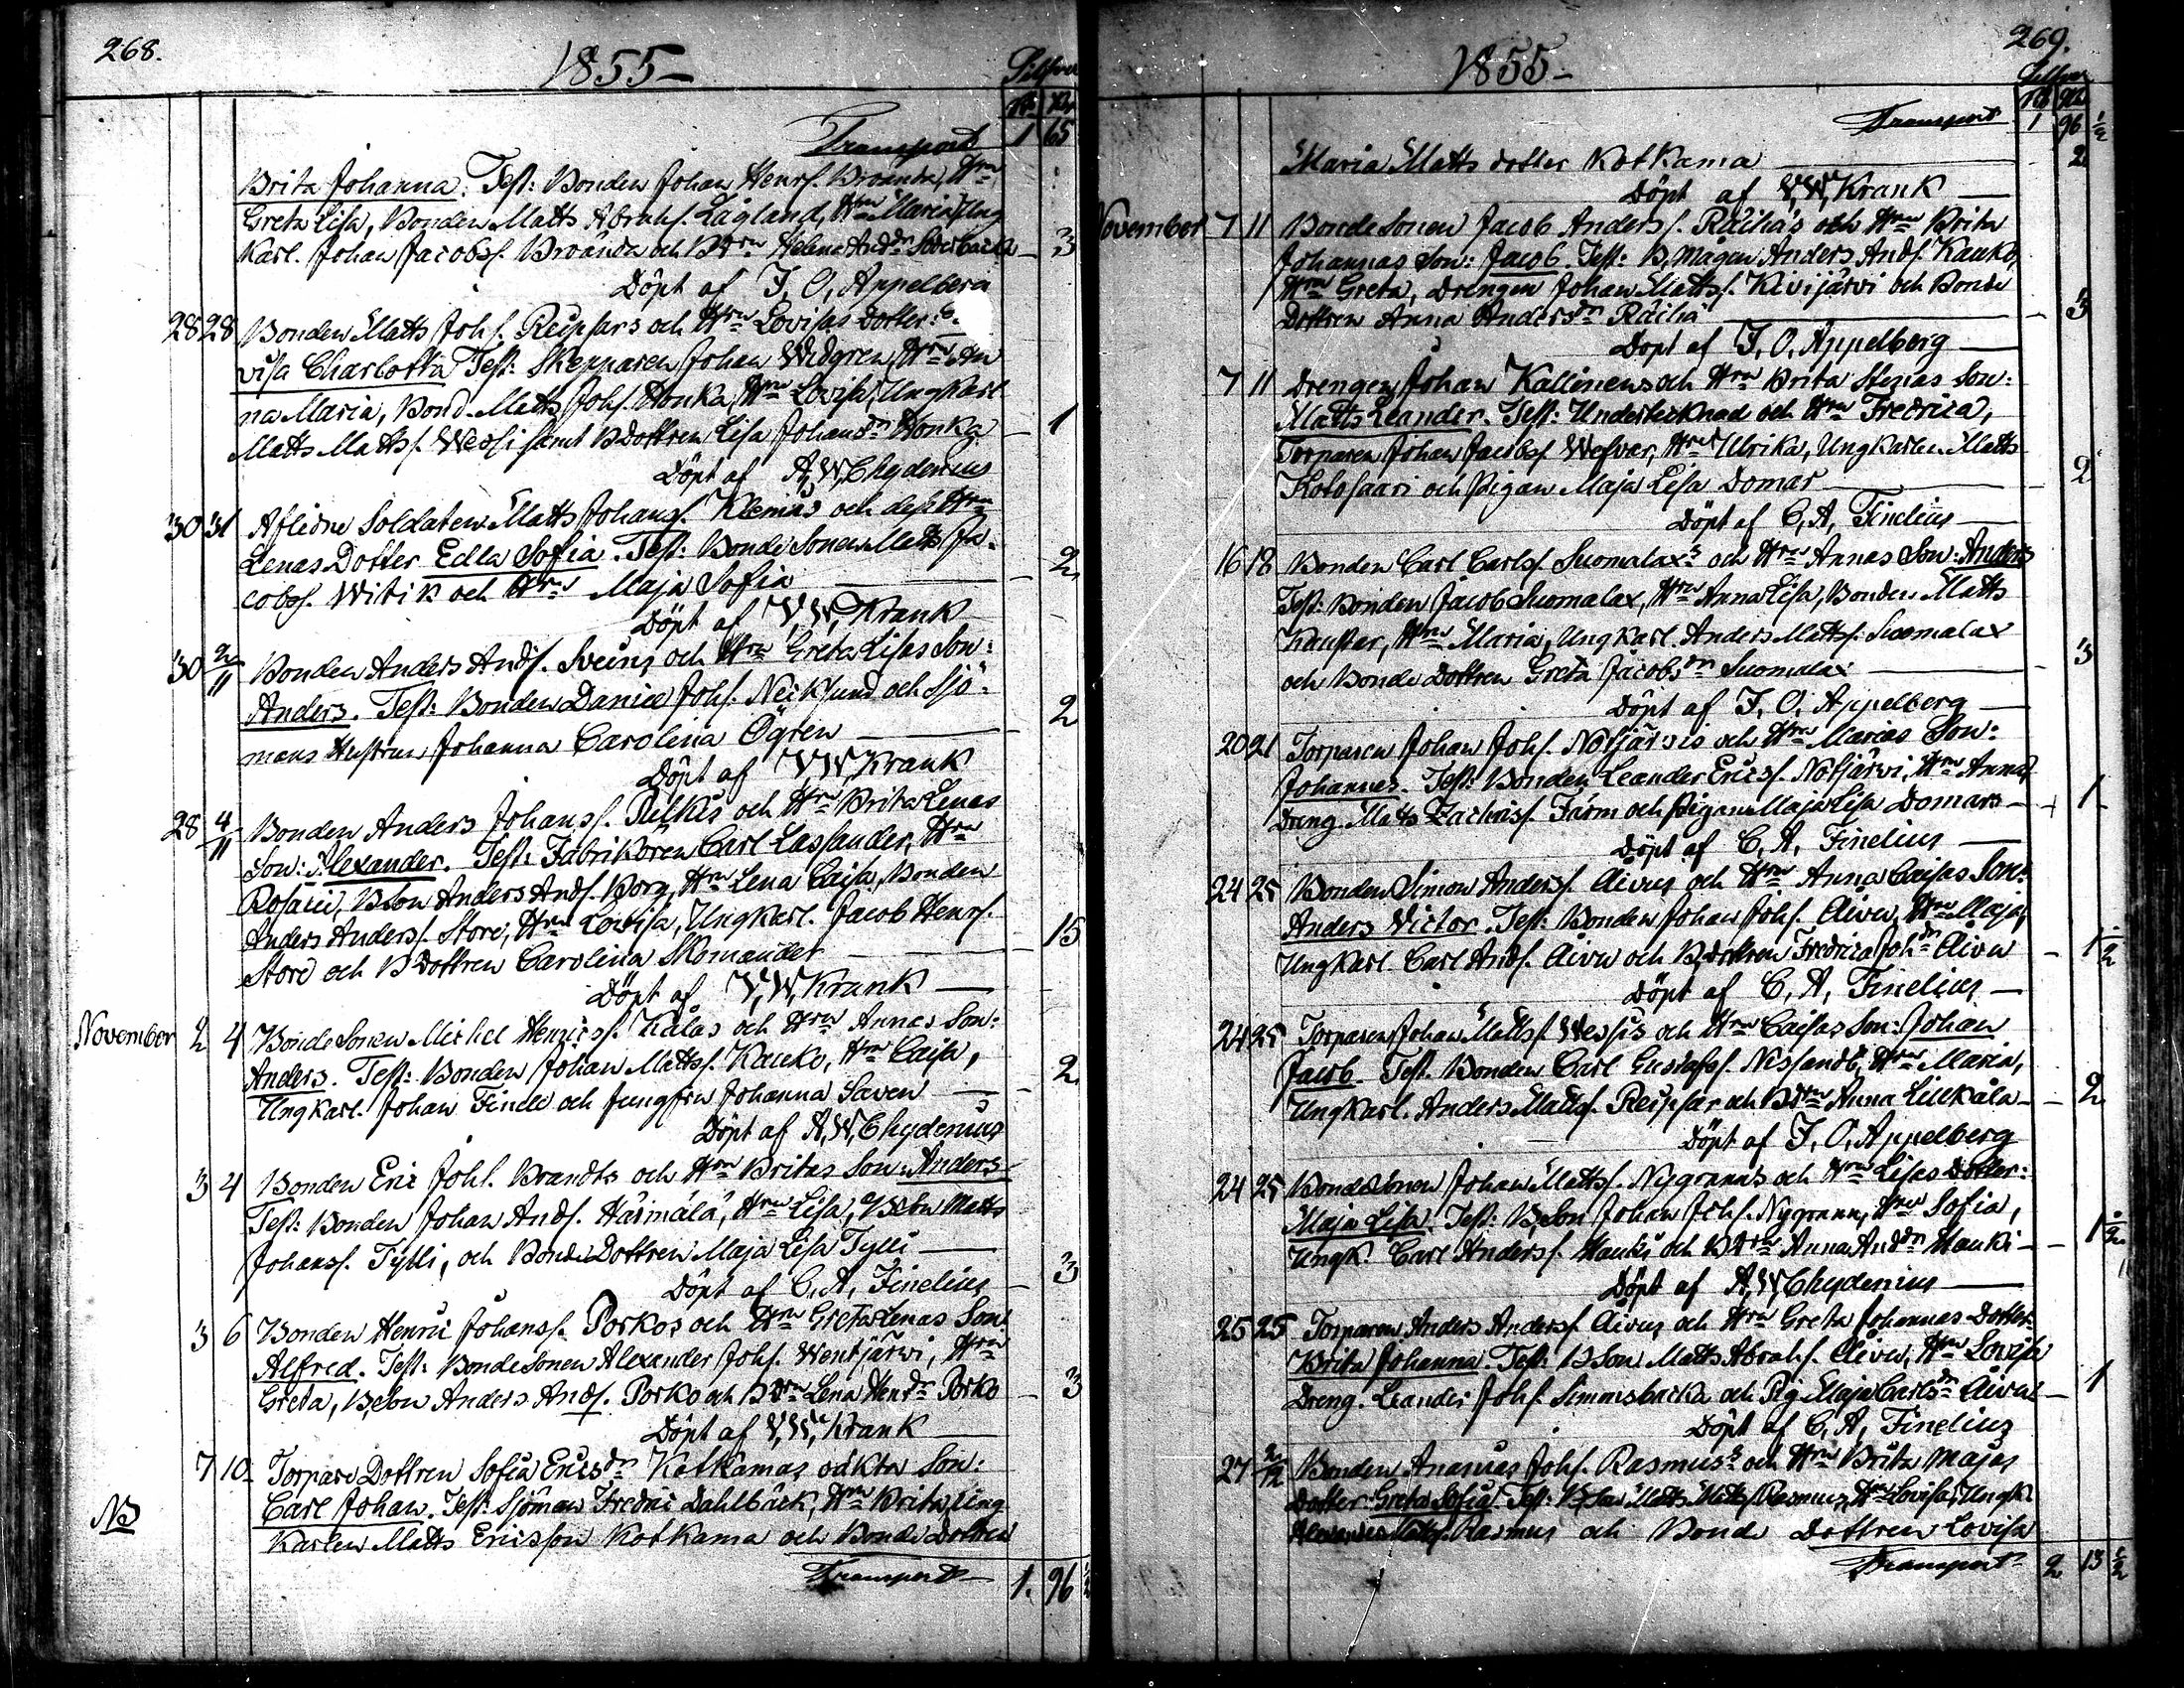 268.
1855
Silfver
Transport 1 65
Brita Johanna. Test: Bonden Johan Henrs. Broända, Hru
Greta Lisa, Bonden Matts Abrahs. Lågland, Hru Maria, Ung
Karl. Johan Jacobss. Broända och BDtrn Helena Andsdr Söderbacka 3
Döpt af F, O, Appelberg
28 28 Bonden Matts Johs. Reipsars och Hru Lovisas Dotter:
visa Charlotta Test: Skepparen Johan Widgren, Hru An
na Maria, Bond. Matts Johs. Honka, Hru Lovisa, Ung Karl
Matts Mattss. Wessi samt BDottren Lisa Johansdr Honka 1
Döpt af A, W, Chydenius
30 31 Aflidne Soldaten Matts Johanss. Klemas och dess Hru
Lenas Dotter Edla Sofia. Test: Bonde Sonen Matts Ja-
cobss. Witik och Hru Maja Sofia 2
Döpt af V, W, Krank
30 2/11 Bonden Anders Ands. Sveins och Hru Greta Lisas Son:
Anders. Test: Bonden Daniel Johs. Neiksund och Sjö-
mans Hustrun Johanna Carolina Ögren 2
Döpt af V W Krank
28 4/11 Bonden Anders Johanss. Pelkis och Hru Brita Lenas
Son: Alexander. Test: Fabrikören Carl Lassander, Hru
BSon Anders Ands. Borg, Hru Lena Caisa, Bonden
Anders Anderss. Store, Hru Lovisa, Ungkarl. Jacob Henrs.
Store och BDottren Carolina Skomander 15
Döpt af V, W, Krank
November 2 4 Bonde Sonen Michel Henricss. Kalas och Hru Annas Son:
Anders. Test: Bonden Johan Mattss. Kauko, Hru Caisa,
Ungkarl. Johan Finell och Jungfru Johanna Saven 2
Döpt af A, W, Chydenius
3 4 Bonden Eric Johs. Brandts och Hru Britas Son: Anders
Test: Bonden Johan Ands. Härmälä, Hru Lisa, BSon Matts
Johanss. Tylli, och Bonde Dottren Maja Lisa Tylli 3
Döpt af C, A, Finelius
3 6 Bonden Henric Johanss. Porkos och Hru Greta Lenas Son
Alfred. Test: Bondesonen Alexander Johs. Wentjärvi, Hru
Greta, BSon Anders Ands. Porko och BDtr Lena Henrdr Porko 3
Döpt af V, W, Krank
7 10 Torpare Dottren Sofia Ericsdr Kotkamas oäkta Son:
NB Carl Johan. Test: Sjöman Fredric Dahlbäck, Hru Brita, Ung
Karlen Matts Ericsson Kotkama och Bonde Dottren
Transport 1. 96 1/2
269.
1855
Silfver
Transport 1 96 1/2
Maria Matts dotter Kotkama 2
Döpt af V, W, Krank
November 7 11 Bonde Sonen Jacob Anderss. Räihäs och Hru Brita
Johannas Son: Jacob. Test: B, Mågen Anders Ands. Kauko,
Hru Greta, Drengen Johan Mattss. Kivijärvi och Bonde
Dottren Anna Andersdr Räihä 3
Döpt af F, O, Appelberg
7 11 Drengen Johan Kallinens och Hru Brita Stenas Son:
Matts Leander. Test: Undertecknad och Hru Fredrica,
Torparen Johan Jacobss. Wefvar, Hru Ulrika, Ungkarlen Matts
Kolosaari och Pigan Maja Lisa Domar 2
Döpt af C, A, Finelius
16 18 Bonden Carl Carlss. Suomalax's och Hru Annas Son: Anders
Test: Bonden Jacob Suomalax, Hru Anna Lisa, Bonden Matts
Kaustar, Hru Maria, Ungkarl. Anders Mattss. Suomalax
och Bonde Dottren Greta Jacobsdr Suomalax 3
Döpt af F, O, Appelberg
20 21 Torparen Johan Johs. Notjärvis och Hru Marias Son:
Johannes. Test: Bonden Leander Ericss. Notjärvi, Hru Anna,
Dreng. Matts Zachriss. Färm och Pigan Maja Lisa Domars 1
Döpt af C, A, Finelius
24 25 Bonden Simon Anderss. Åivus och Hru Anna Caisas Son:
Anders Victor. Test: Bonden Johan Johs. Åivu, Hru Maja,
Ungkarl. Carl Ands. Åivu och B,Dottren Fredrica Johdr Åivu 1 1/2
Döpt af C, A, Finelius
24 25 Torparen Johan Mattss. Wessis och Hru Caisas Son: Johan
Jacob. Test. Bonden Carl Gustafss. Nissand, Hru Maria,
Ungkarl. Anders Mattss. Reipsar och BDtr Anna Lillkåla 2
Döpt af F, O, Appelberg
24 25 Bonde Sonen Johan Mattss. Nygranns och Hru Lisas Dotter:
Maja Lisa. Test: B,Son Johan Johs. Nygrann, Hru Sofia,
Ungk. Carl Anderss. Hauki och BDtr Anna Anddr Hauki 1 1/2
Döpt af A, W, Chydenius
25 25 Torparen Anders Anderss. Åivus och Hru Greta Johannas Dotter:
Brita Johanna. Test: BSon Matts Abrahs. Åivu, Hru Lovisa
Dreng. Leander Johs. Simonsbacka och Pig. Maja Carlsdr Åivu 1
Döpt af C, A, Finelius
27 2/12 Bonden Ananias Johs. Rasmus's och Hru Brita Majas
Dotter: Greta Sofia. Test: B,Son Matts Matts. Rasmus, Hru Lovisa, Ungk.
Mattss. Rasmus och Bonde Dottren Lovisa
Transport 2 13 1/2